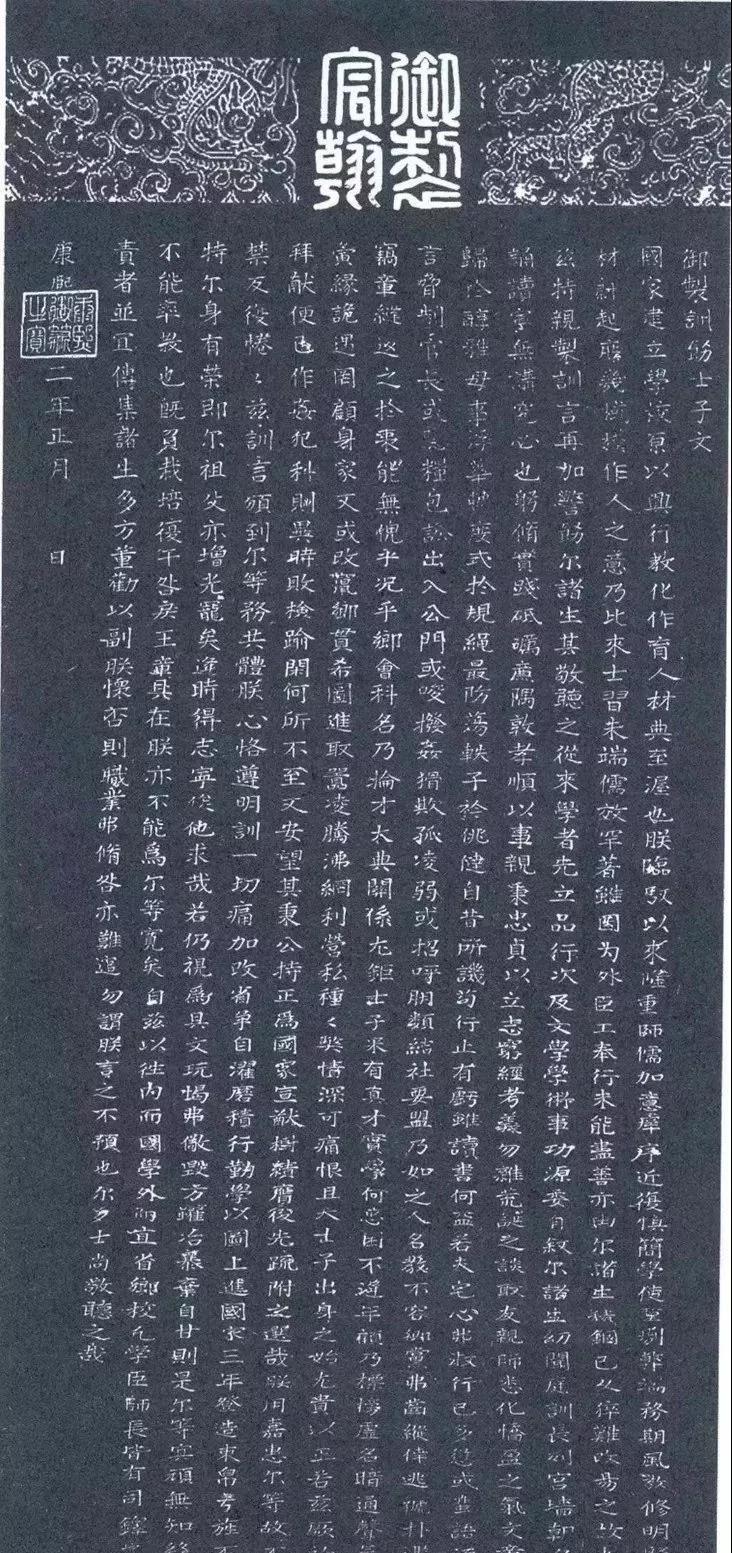 御製宸翰
御製訓飭士子文
國家建立學校原以興行教化作育人材典至渥也朕臨馭以來隆重師儒加意庠序近復慎簡學使釐剔弊端務期風教修明
材蔚起庶幾棫樸作人之意乃比來士習未端儒效罕著雖因內外臣工奉行未能盡善亦由尔諸生積錮已久猝難改易之故
茲特親製訓言再加警飭尔諸生其敬聽之從來學者先立品行次及文學學術事功源委有敘尔諸生幼聞庭訓長列宮墻朝
誦讀寧無講究必也躬脩實踐砥礪廉隅敦孝順以事親秉忠貞以立志窮經考義勿雜荒誕之談取友親師悉化憍盈之氣文章
歸於醇雅毋事浮華軌度式於規繩最防蕩軼子衿佻達自昔所譏苟行止有虧雖讀書何益若夫宅心弗淑行己多愆或蜚語
言脅制官長或隱糧包訟出入公門或唆撥姦猾欺孤凌弱或招呼朋類結社要盟乃如之人名教不容鄉黨弗齒縱倖逃褫扑
竊章縫返之於衷能無愧乎況乎鄉會科名乃掄才大典關係尤鉅士子果有真才實學何患困不逢年顧乃標榜虛名暗通聲
夤緣詭遇罔顧身家又或改竄鄉貫希圖進取囂凌騰沸網利營私種々弊情深可痛恨且夫士子出身之始尤貴以正若茲厥
拜獻便已作姦犯科則異時敗檢踰閑何所不至又安望其秉公持正為國家宣猷樹績膺後先疏附之選哉朕用嘉惠尔等故
禁反復惓々茲訓言頒到尔等務共體朕心恪遵明訓一切痛加改省爭自濯磨積行勤學以圖上進國家三年登造束帛弓旌
特尔身有榮即尔祖父亦增光寵矣逢時得志寧俟他求哉若仍視為具文玩愒弗儆毀方躍冶暴棄自甘則是尔等冥頑無知
不能率教也既負栽培復干咎戾王章具在朕亦不能為尔等寬矣自茲以往內而國學外而直省鄉校凡學臣師長皆有司鐸
責者並宜傳集諸生多方董勸以副朕懷否則職業弗脩咎亦難逭勿謂朕言之不預也尔多士尚敬聽之哉
康熙二年正月 日
康熙御筆之寶